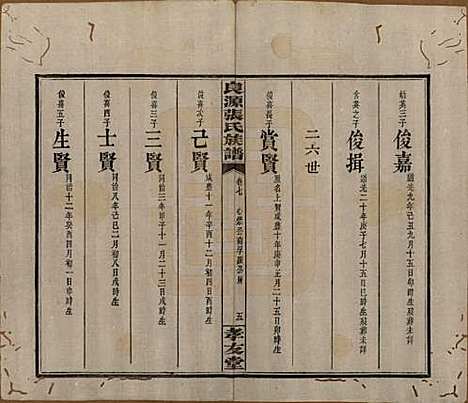 俊嘉
道光九年己丑九月十五日卯時生歿葬未詳
俊揖
道光二十年庚子七月十五日巳時生歿葬未詳
二六世
俊喜長子
賞賢
原名上賢咸豐十年庚申正月二十五日卯時生
良源張氏族譜
卷七
五
孝友堂
俊喜次子
己賢
咸豐十一年辛酉十二月初四日酉時生
俊喜三子
三賢
同治三年甲子十一月二十三日戌時生
俊喜四子
士賢
同治八年己巳二月初八日戌時生
俊喜五子
生賢
同治十二年癸酉四月初一日亥時生